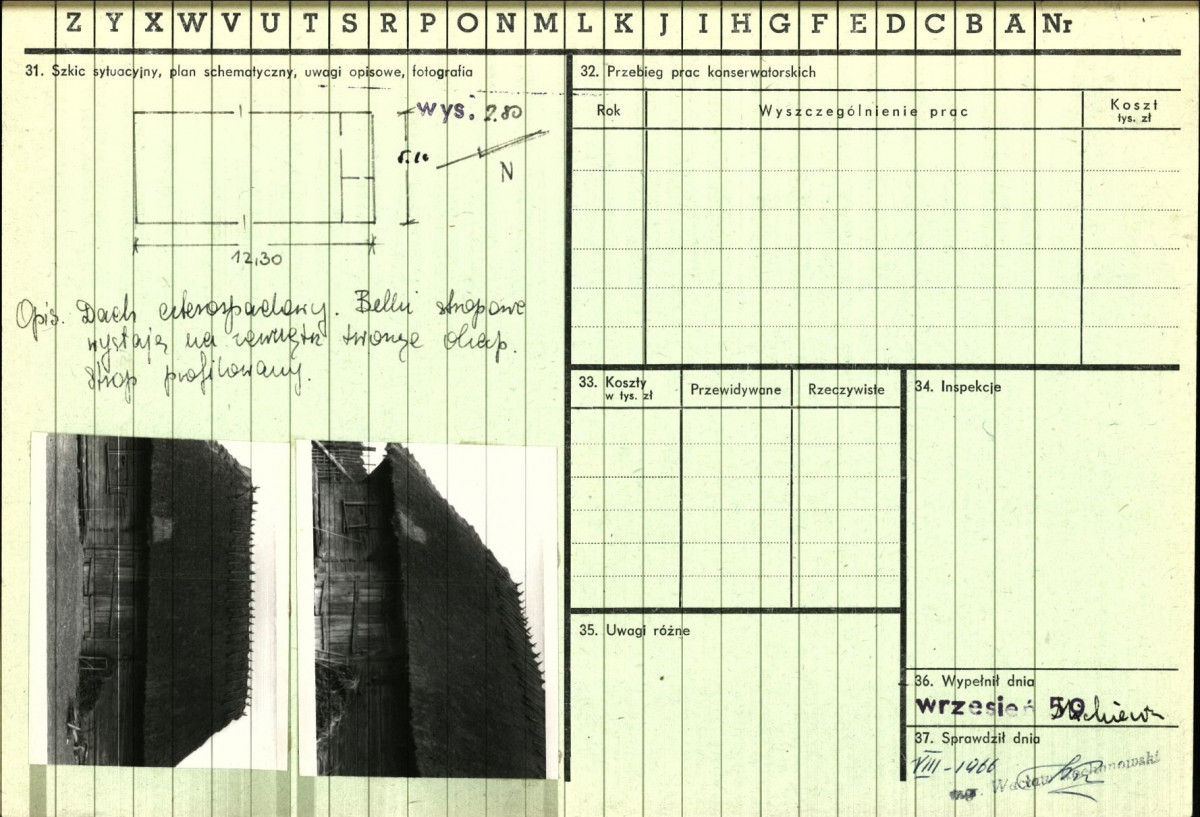 Z Y X W V U T S R P O N M L K J I H G F E D C B A Nr
31. Szkic sytuacyjny, plan schematyczny, uwagi opisowe, fotografia
wys: 2.80
N
12,30
Opis. Dach czterospadowy. Belki stropowe
wystają na zewnątrz tworząc okap.
Strop profilowany.
32. Przebieg prac konserwatorskich
Rok
Wyszczególnienie prac
Koszt
tys. zł
33. Koszty
w tys. zł
Przewidywane
Rzeczywiste
34. Inspekcje
35. Uwagi różne
36. Wypełnił dnia
wrzesień 59
37. Sprawdził dnia
VIII-1966
mgr. Wacław Kochanowski